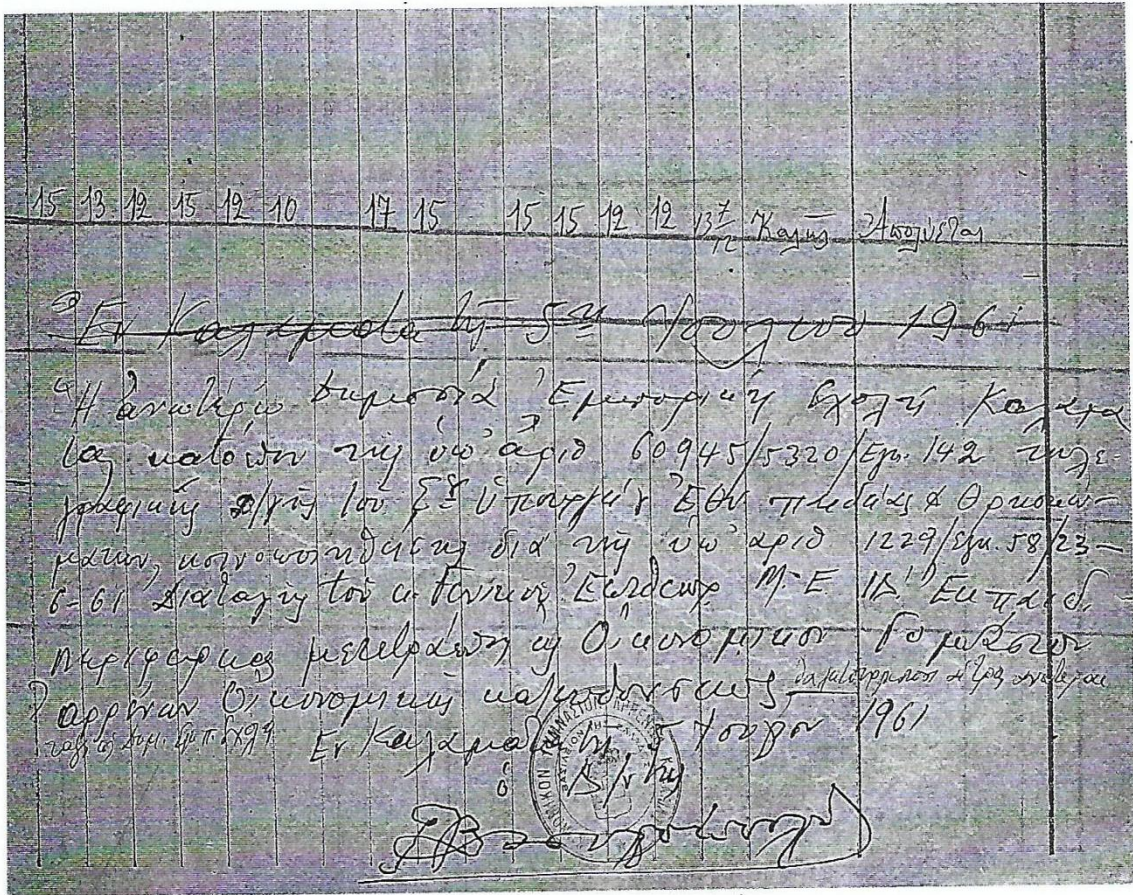 15 13 12 15 12 10 17 15 15 15 12 12 13 7/12 Καλῶς Ἀπολύεται
Ἐν Καλαμάτᾳ τῇ 5ῃ Ἰουλίου 1961
Ἡ ἀνωτέρω Δημοσία Ἐμπορικὴ Σχολὴ Καλαμά
τας κατόπιν τῆς ὑπ' ἀριθ 60945/5320/Εγκ. 142 τηλε-
γραφικῆς δ/γῆς τοῦ Σ. Ὑπουργείου Ἐθν παιδείας & Θρησκευ-
μάτων, κοινοποιηθείσης διὰ τῆς ὑπ' αριθ 1229/εγκ. 58/23-
6-61 Διαταγῆς τοῦ κ. Γενικοῦ Ἐπιθεωρ Μ.Ε. ΙΔ' Ἐκπαιδ.
περιφερείας μετετράπη εἰς Οἰκονομικὸν Γυμνάσιον
αρρένων Οἰκονομικῆς κατευθύνσεως
ταξις Δημ. Εμπ. Σχολή
Εν Καλαμάτᾳ τῇ 5 Ἰουλίου 1961
ὁ Δ/ντὴς